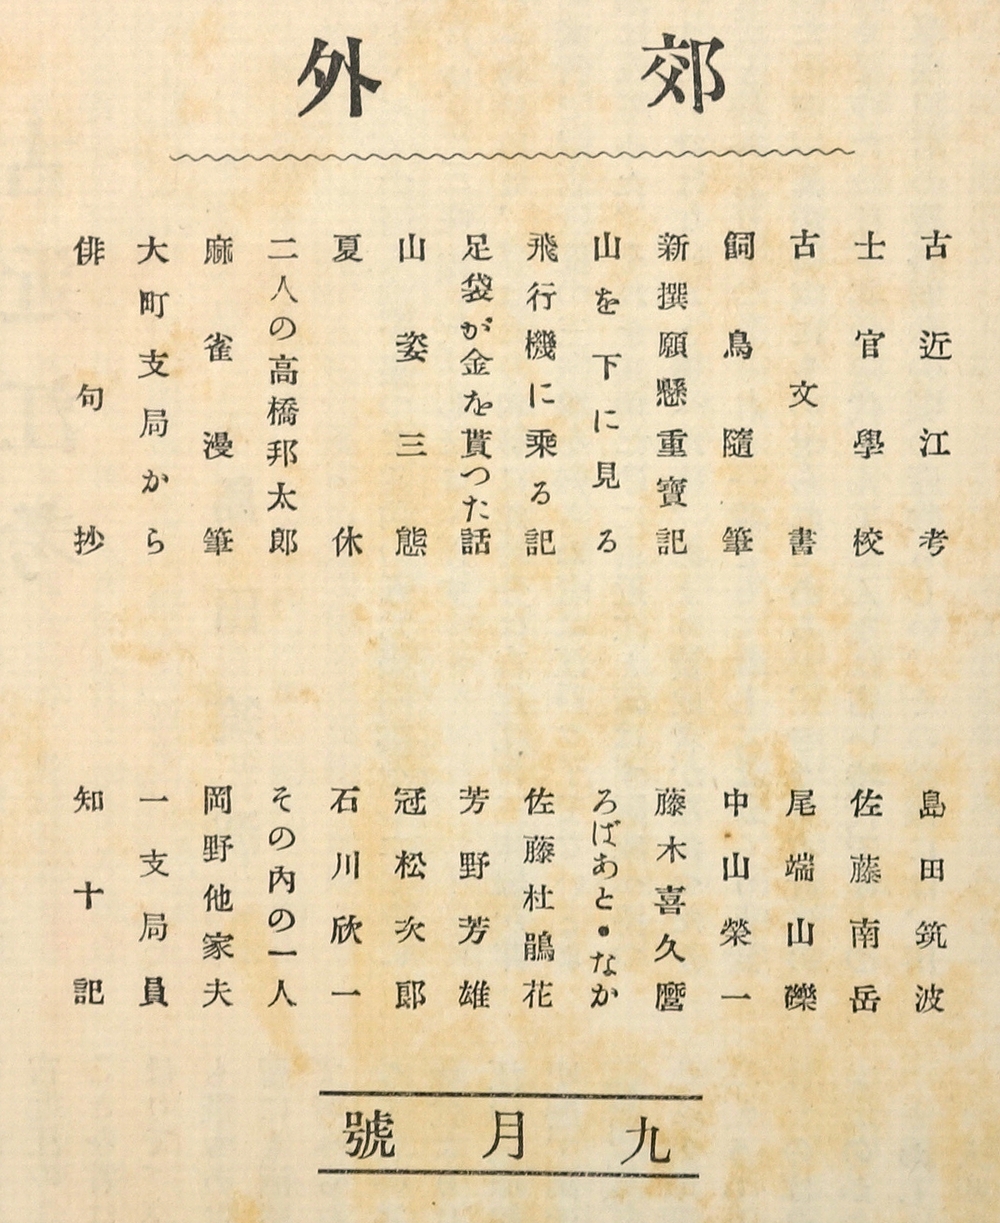 郊外
古近江考 島田筑波
士官學校 佐藤南岳
古文書 尾端山礫
飼鳥隨筆 中山榮一
新撰願懸重寶記 藤木喜久麿
山を下に見る ろばあと・なか
飛行機に乘る記 佐藤杜鵑花
足袋が金を貰つた話 芳野芳雄
山姿三態 冠松次郎
夏休 石川欣一
二人の高橋邦太郎 その內の一人
麻雀漫筆 岡野他家夫
大町支局から 一支局員
俳句抄 知十記
九月號